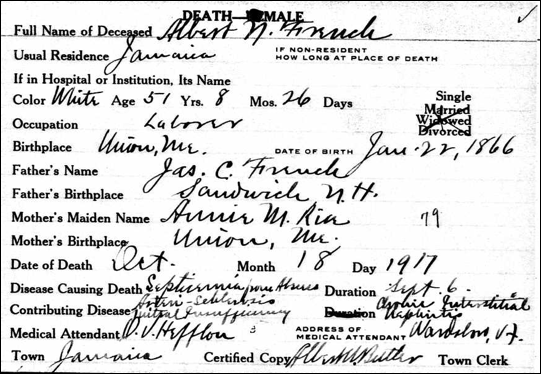 DEATH—FEMALE
Full Name of Deceased Albert N. French
Usual Residence Jamaica IF NON-RESIDENT HOW LONG AT PLACE OF DEATH
If in Hospital or Institution, Its Name
Color White Age 51 Yrs. 8 Mos. 26 Days Single Married Widowed Divorced
Occupation Laborer
Birthplace Union, Me. DATE OF BIRTH Jan. 22, 1866
Father's Name Jas. C. French
Father's Birthplace Sandwich N.H.
Mother's Maiden Name Annie M. 79
Mother's Birthplace Union, Me.
Date of Death Oct. Month 18 Day 1917
Disease Causing Death Septicemia Abscess Duration Sept. 6.
Contributing Disease Arterio-Sclerosis Mitral Insufficiency Duration Chronic Interstitial Nephritis
Medical Attendant D. V. Hefflon ADDRESS OF MEDICAL ATTENDANT Wardsboro, Vt.
Town Jamaica Certified Copy Albert W. Butler Town Clerk